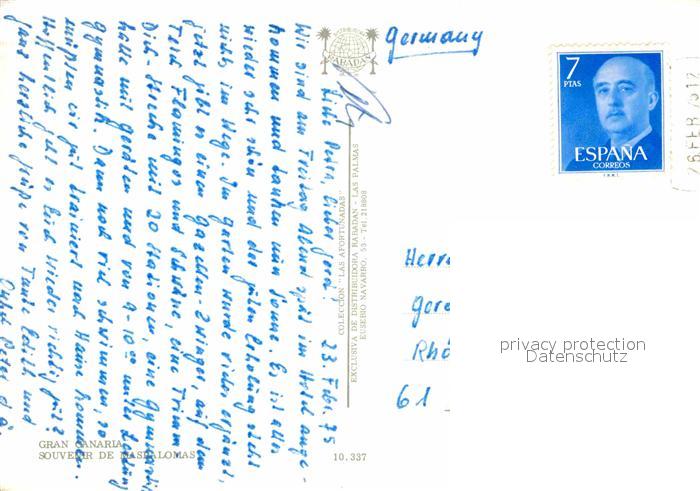 Germany
RABADAN
7
PTAS
ESPAÑA
CORREOS
28 FEB 75 12
23. Febr. 75
Liebe Petra, lieber Gerd,
Wir sind am Freitag Abend spät im Hotel ange-
kommen und laufen nun Sonne. Es ist alles
wieder sehr schön und der guten Erholung steht
nichts im Wege. Im Garten wurde viel ergänzt,
jetzt gibt es einen Gazellen-Zwinger, auf dem
Teich Flamingos und Schwäne, eine Trimm
Dich-Strecke mit 20 Stationen, eine Gymnastik
halle mit Geräten und von 9-10 Uhr unter Leitung
Gymnastik. Dann noch viel schwimmen, so
müssen wir gut trainiert nach Hause kommen.
Hoffentlich geht es Euch wieder richtig gut?
Ganz herzliche Grüße von Tante Edith und
Onkel Peter
COLECCION "LAS AFORTUNADAS"
EXCLUSIVA DE DISTRIBUIDORA RABADAN - LAS PALMAS
EUSEBIO NAVARRO, 53 - Tel. 218808
Herrn
Rhö
61
privacy protection
Datenschutz
GRAN CANARIA
SOUVENIR DE MASPALOMAS
10.337